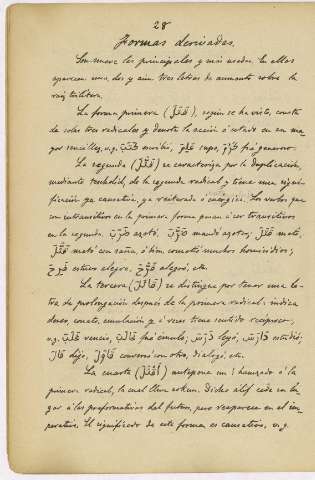 28
Formas derivadas.
Son nueve las principales y más usadas. En ellas
aparecen una, dos y aun tres letras de aumento sobre la
raíz trilítera.
La forma primera (فَعَلَ), según se ha visto, consta
de solas tres radicales y denota la acción ó estado en su ma-
yor sencillez, v.g. كَتَبَ escribió, عَلِمَ supo, فَرِحَ
La segunda (فَعَّلَ) se caracteriza por la duplicación,
mediante texdid, de la segunda radical y tiene una signi-
ficación ya causativa, ya reiterada ó enérgica. Los verbos que
son intransitivos en la primera forma pasan á ser transitivos
en la segunda. ضَرَبَ azotó, ضَرَّبَ mandó azotar; قَتَلَ mató,
قَتَّلَ mató con saña, ó bien cometió muchos homicidios;
فَرِحَ estuvo alegre, فَرَّحَ alegró, etc.
La tercera (فَاعَلَ) se distingue por tener una le-
tra de prolongación después de la primera radical: indica
deseo, conato, emulación y á veces tiene sentido recíproco,
v.g. غَلَبَ venció, غَالَبَ fué émulo; دَرَسَ leyó, دَارَسَ estudió;
قَالَ dijo, قَاوَلَ conversó con otro, dialogó, etc.
La cuarta (أَفْعَلَ) antepone un أ hamzado á la
primera radical, la cual lleva sokun. Dicho alif cede su lu-
gar á las preformativas del futuro, pero reaparece en el im-
perativo. El significado de esta forma es causativo, v.g.